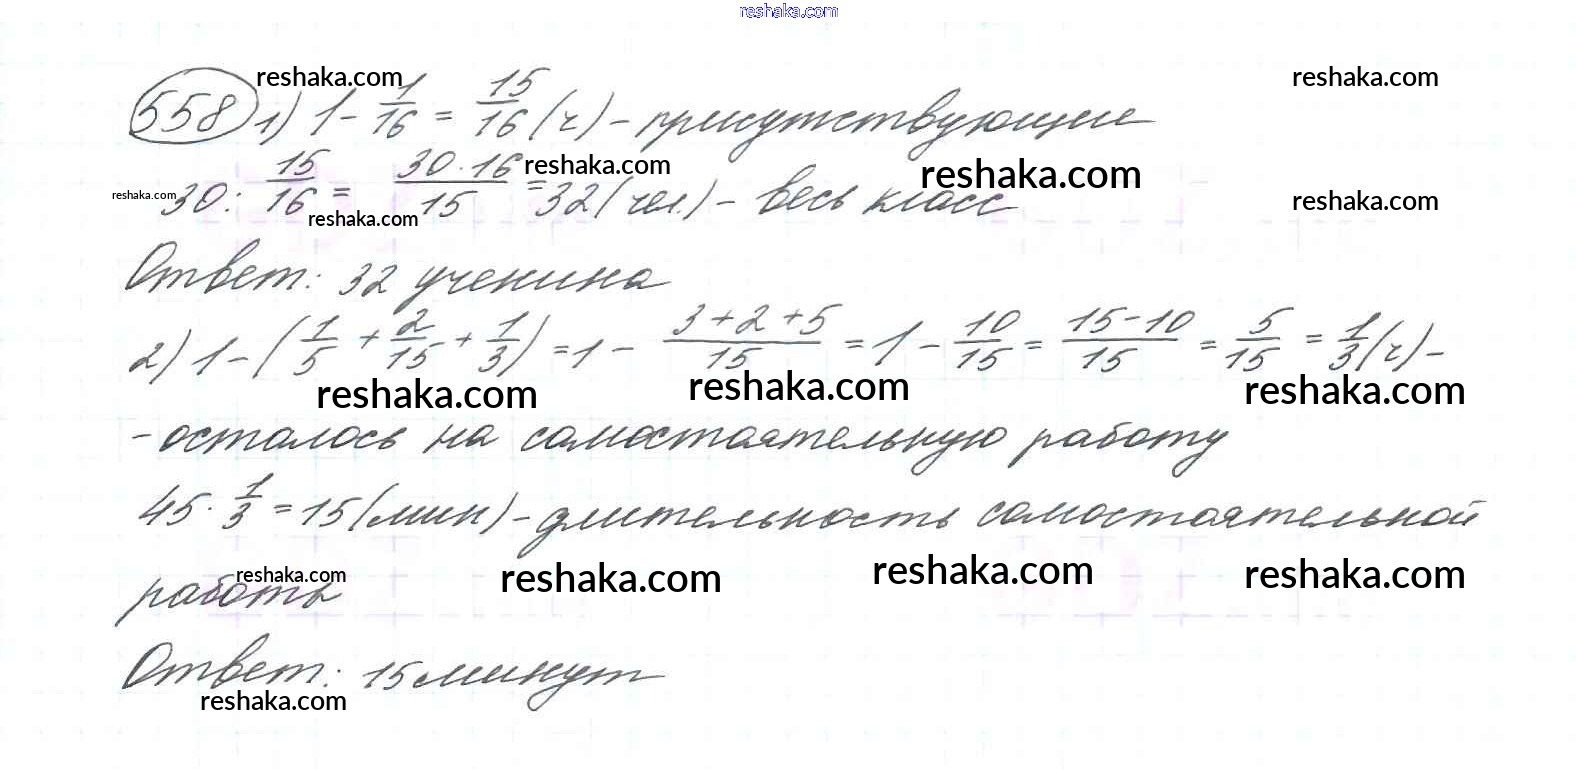 reshaka.com
reshaka.com reshaka.com
558 1) 1 - 1/16 = 15/16 (ч) - присутствующие
reshaka.com reshaka.com
30 : 15/16 = 30·16/15 = 32 (чел.) - весь класс
reshaka.com reshaka.com reshaka.com
Ответ: 32 ученика
2) 1 - (1/5 + 2/15 + 1/3) = 1 - 3+2+5/15 = 1 - 10/15 = 15-10/15 = 5/15 = 1/3 (ч) -
reshaka.com reshaka.com reshaka.com
- осталось на самостоятельную работу
45 · 1/3 = 15 (мин) - длительность самостоятельной
reshaka.com reshaka.com reshaka.com reshaka.com
работы
Ответ: 15 минут
reshaka.com